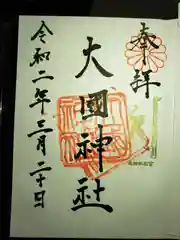 奉拝
大國神社
令和二年三月二十日